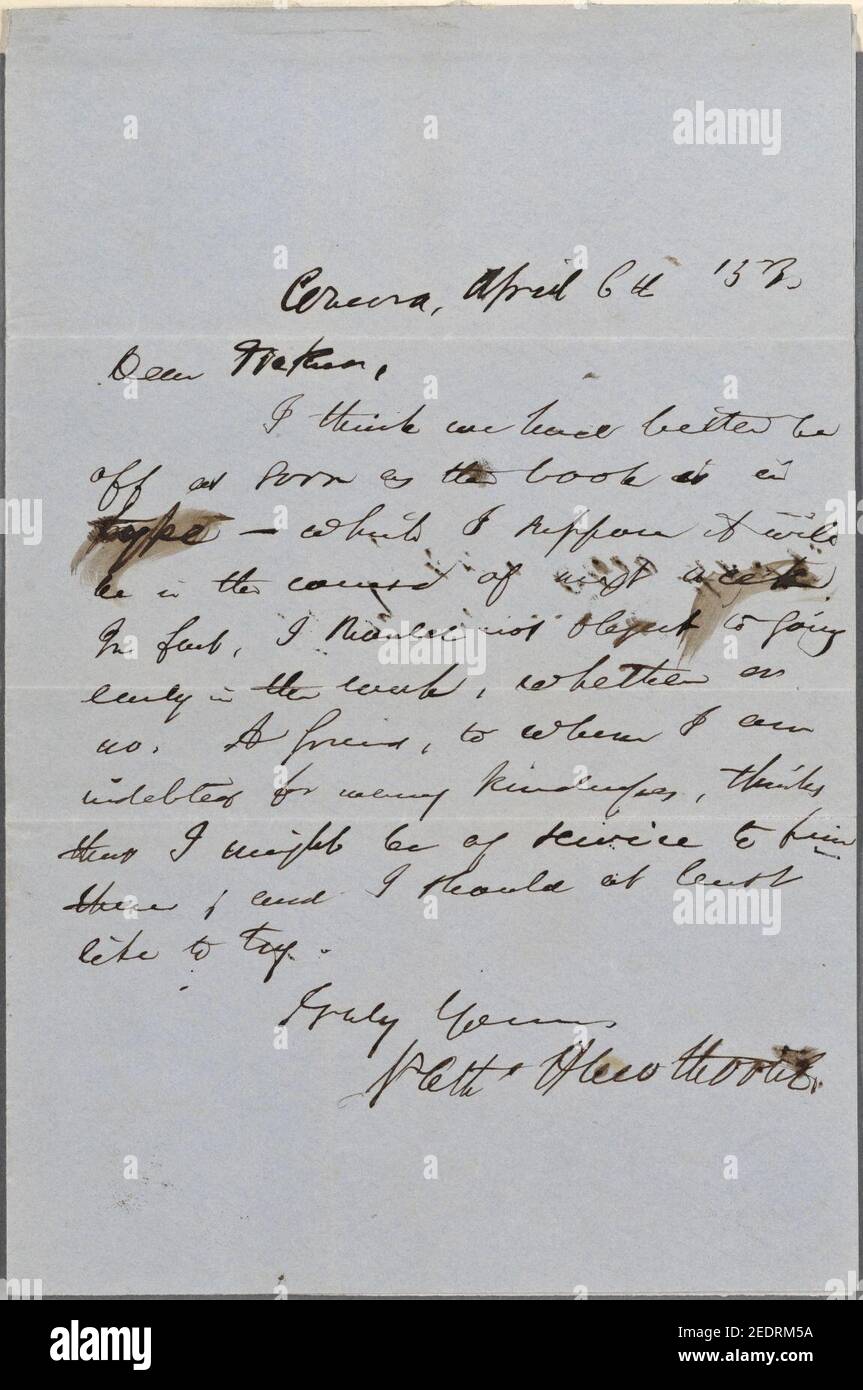 Concord, April 6th '53.
Dear Ticknor,
I think we had better be
off as soon as the book is in
type — which I suppose it will
be in the course of next week.
In fact, I should not object to going
early in the week, whether or
no. A friend, to whom I am
indebted for many kindnesses, thinks
that I might be of service to him
there; and I should at least
like to try.
Truly Yours,
Nathl Hawthorne.
a
alamy
alamy
Image ID: 2EDRM5A
www.alamy.com